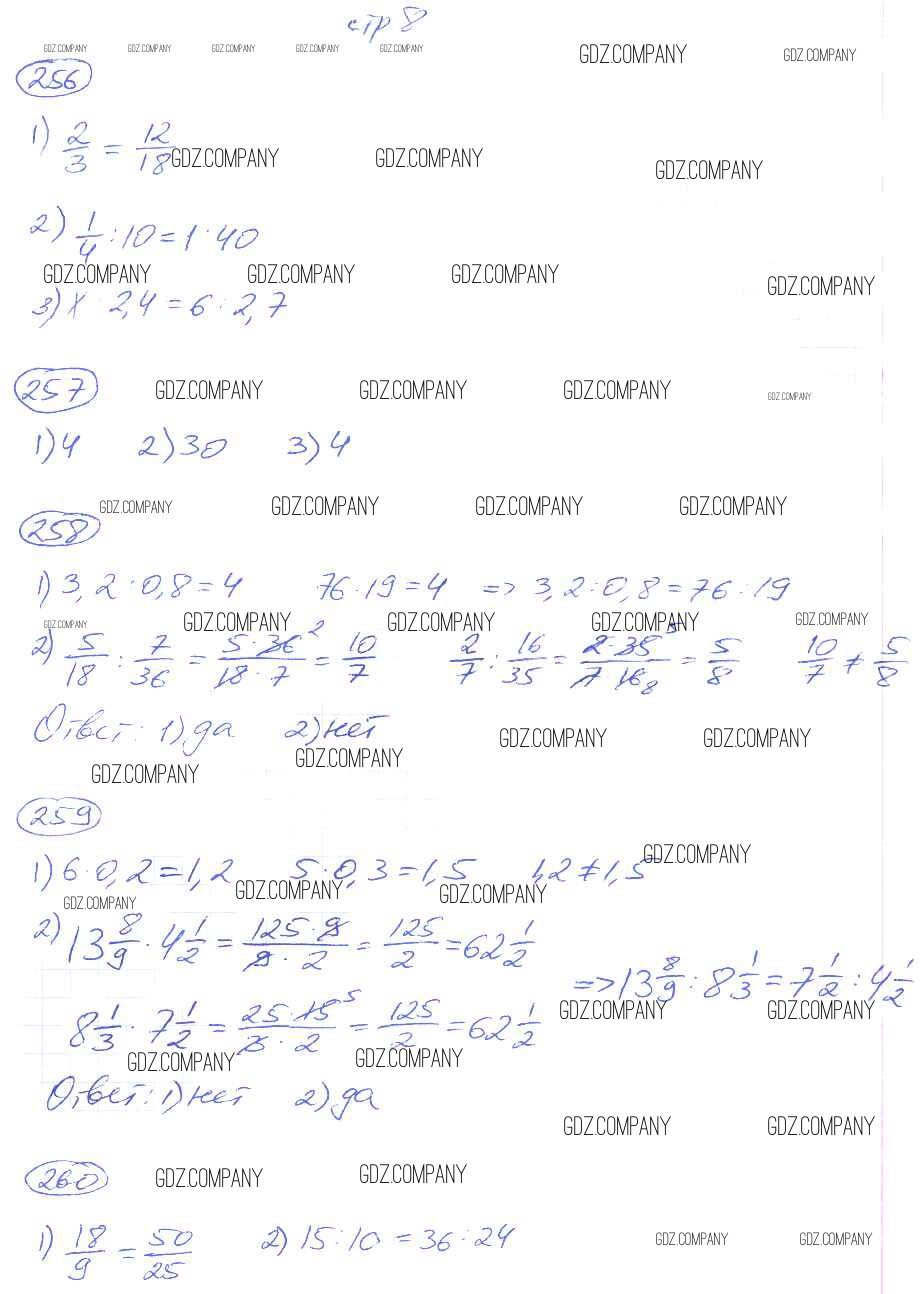 стр 8
GDZ.COMPANY GDZ.COMPANY GDZ.COMPANY GDZ.COMPANY GDZ.COMPANY GDZ.COMPANY GDZ.COMPANY
256
1) 2/3 = 12/18
GDZ.COMPANY GDZ.COMPANY GDZ.COMPANY
2) 1/4 : 10 = 1 : 40
GDZ.COMPANY GDZ.COMPANY GDZ.COMPANY GDZ.COMPANY
3) x : 2,4 = 6 : 2,7
257
GDZ.COMPANY GDZ.COMPANY GDZ.COMPANY GDZ.COMPANY
1) 4 2) 30 3) 4
GDZ.COMPANY GDZ.COMPANY GDZ.COMPANY GDZ.COMPANY
258
1) 3,2 : 0,8 = 4 76 : 19 = 4 => 3,2 : 0,8 = 76 : 19
GDZ.COMPANY GDZ.COMPANY GDZ.COMPANY GDZ.COMPANY GDZ.COMPANY
2) 5/18 : 7/36 = 5·36 2/18·7 = 10/7 2/7 : 16/35 = 2·35 5/7·16 8 = 5/8 10/7 ≠ 5/8
Ответ: 1) да 2) нет
GDZ.COMPANY GDZ.COMPANY GDZ.COMPANY GDZ.COMPANY
259
1) 6·0,2 = 1,2 5·0,3 = 1,5 1,2 ≠ 1,5
GDZ.COMPANY GDZ.COMPANY GDZ.COMPANY GDZ.COMPANY
2) 13 8/9 · 4 1/2 = 125·9/9·2 = 125/2 = 62 1/2
=> 13 8/9 : 8 1/3 = 7 1/2 : 4 1/2
8 1/3 · 7 1/2 = 25·15 5/3·2 = 125/2 = 62 1/2
GDZ.COMPANY GDZ.COMPANY GDZ.COMPANY GDZ.COMPANY
Ответ: 1) нет 2) да
GDZ.COMPANY GDZ.COMPANY
260
GDZ.COMPANY GDZ.COMPANY
1) 18/9 = 50/25 2) 15 : 10 = 36 : 24
GDZ.COMPANY GDZ.COMPANY